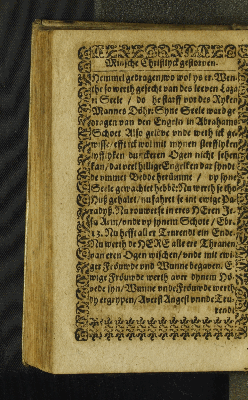 Minsche Christlyck gestorven.
Hemmel gedrogen, wo wol ys te. Wen-
the so werth gesecht van des leeven Laza-
ri Seele / do he starff vor des Ryken
Mannes Döhr: Syne Seele ward ge-
dragen van den Engeln in Abrahams
Schoet Also gelöve unde weth ick ge-
wisse / efft ick wol mit mynen sterfflyken
fleischlyken Ogen nicht sehen
kan / dat veel hillige Engelken dar synde
de ummet Bedde herümme / up syne
Seele gewachtet hebbē: Nu werth se tho
Huß gehalet / nu fahret se int ewige Pa-
radyß. Nu rouwet se in eres HEren Je-
su Arm / unde up synem Schote / Ebr.
13. Nu hefft all er Trurent ein Ende.
Nu werth de HERE alle ere Thranen
van eren Ogen wischen / unde mit ewi-
ger Fröuwde und Wunne begaven. E-
wige Fröuwde werth aver synem Hö-
vede syn / Wunne unde Fröuwde werth
sy ergrypen / Averst Angest unnde Tru-
rent